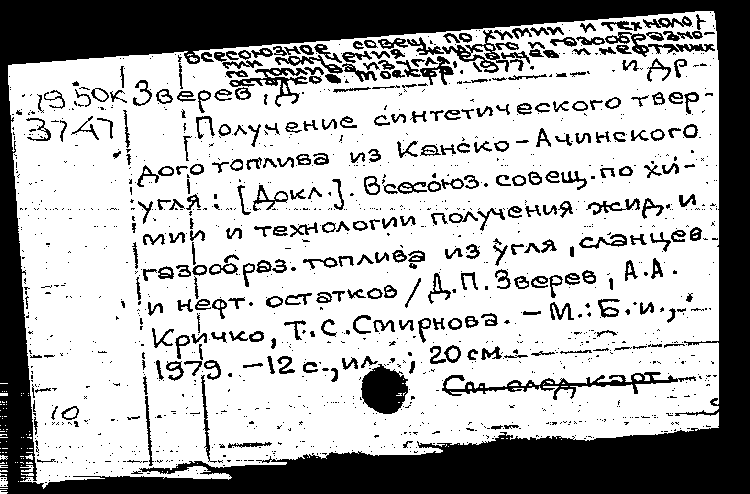 Всесоюзное совещ. по химии и техноло-
гии получения жидкого и газообразно-
го топлива из угля, сланцев и нефтяных
остатков. Москва. 1977.
19.50к Зверев, Д. и др
3747 Получение синтетического твер-
дого топлива из Канско-Ачинского
угля: [Докл.]. Всесоюз. совещ. по хи-
мии и технологии получения жид. и
газообраз. топлива из угля, сланцев
и нефт. остатков / Д.П. Зверев, А.А.
Кричко, Т.С. Смирнова. - М.: Б. и.,
1979. - 12 с., ил. ; 20 см.
См. след. карт.
10